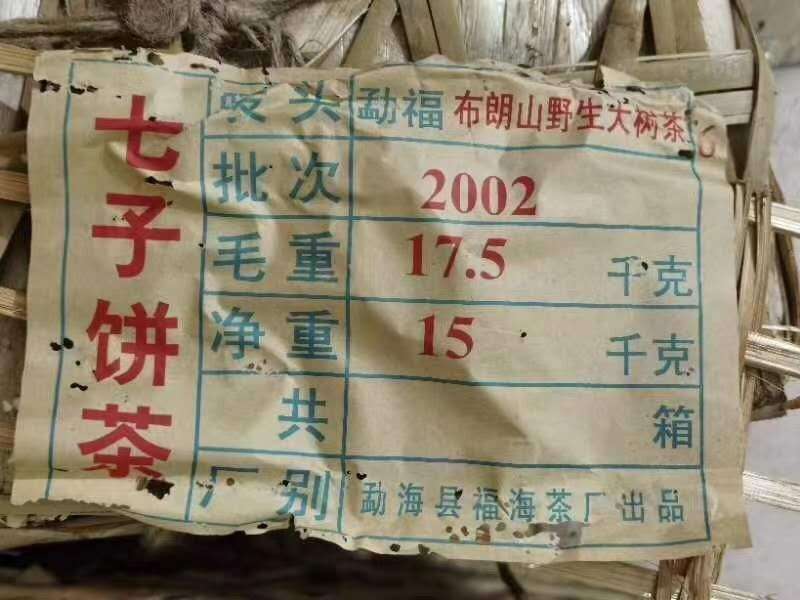 七子饼茶
唛头 勐福 布朗山野生大树茶
批次 2002
毛重 17.5 千克
净重 15 千克
共 箱
厂别 勐海县福海茶厂出品